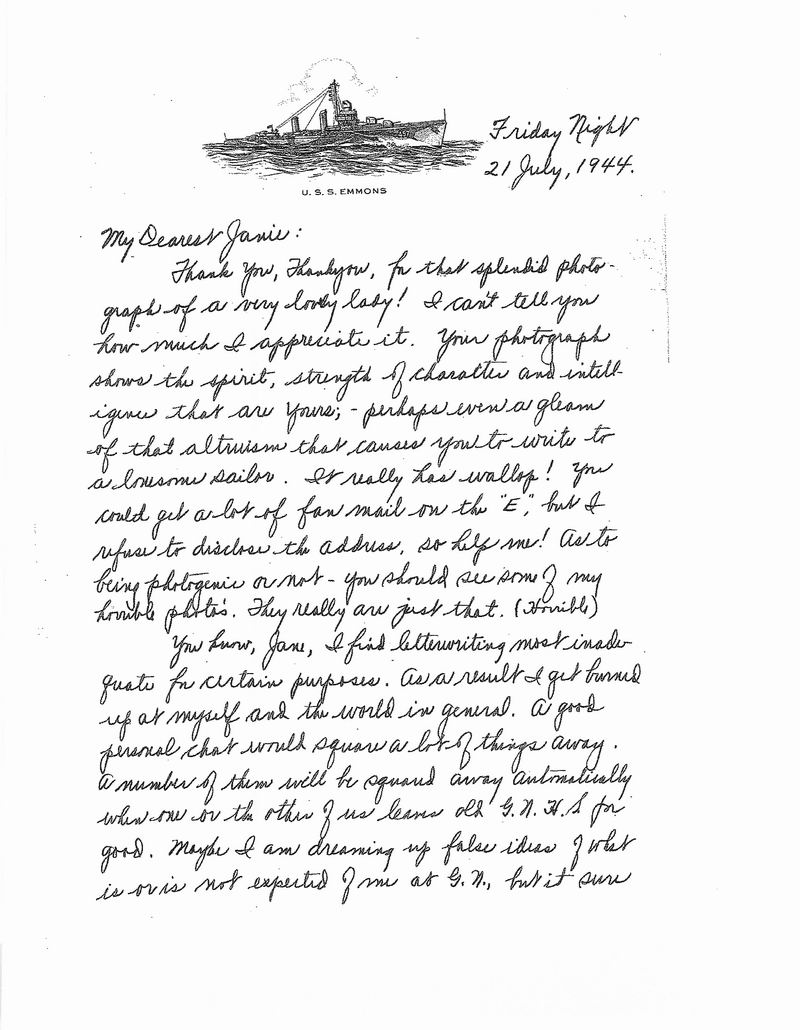 Friday Night
21 July, 1944.
U. S. S. EMMONS
My Dearest Janie:
Thank You, Thankyou, for that splendid photo-
graph of a very lovely lady! I can't tell you
how much I appreciate it. Your photograph
shows the spirit, strength of character and intell-
igence that are yours; - perhaps even a gleam
of that altruism that causes you to write to
a lonesome sailor. It really has wallop! You
could get a lot of fan mail on the "E", but I
refuse to disclose the address, so help me! As to
being photogenic or not - you should see some of my
horrible photos. They really are just that. (Horrible)
You know, Jane, I find letterwriting most inade-
quate for certain purposes. As a result I get burned
up at myself and the world in general. A good
personal chat would square a lot of things away.
A number of them will be squared away automatically
when one or the other of us leaves old G. N. H. S for
good. Maybe I am dreaming up false ideas of what
is or is not expected of me at G. N., but it sure